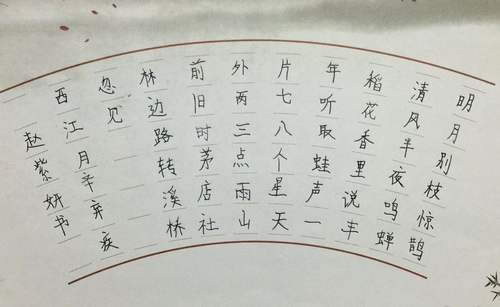 明月别枝惊鹊
清风半夜鸣蝉
稻花香里说丰
年听取蛙声一
片七八个星天
外两三点雨山
前旧时茅店社
林边路转溪桥
忽见
西江月辛弃疾
赵紫妍书